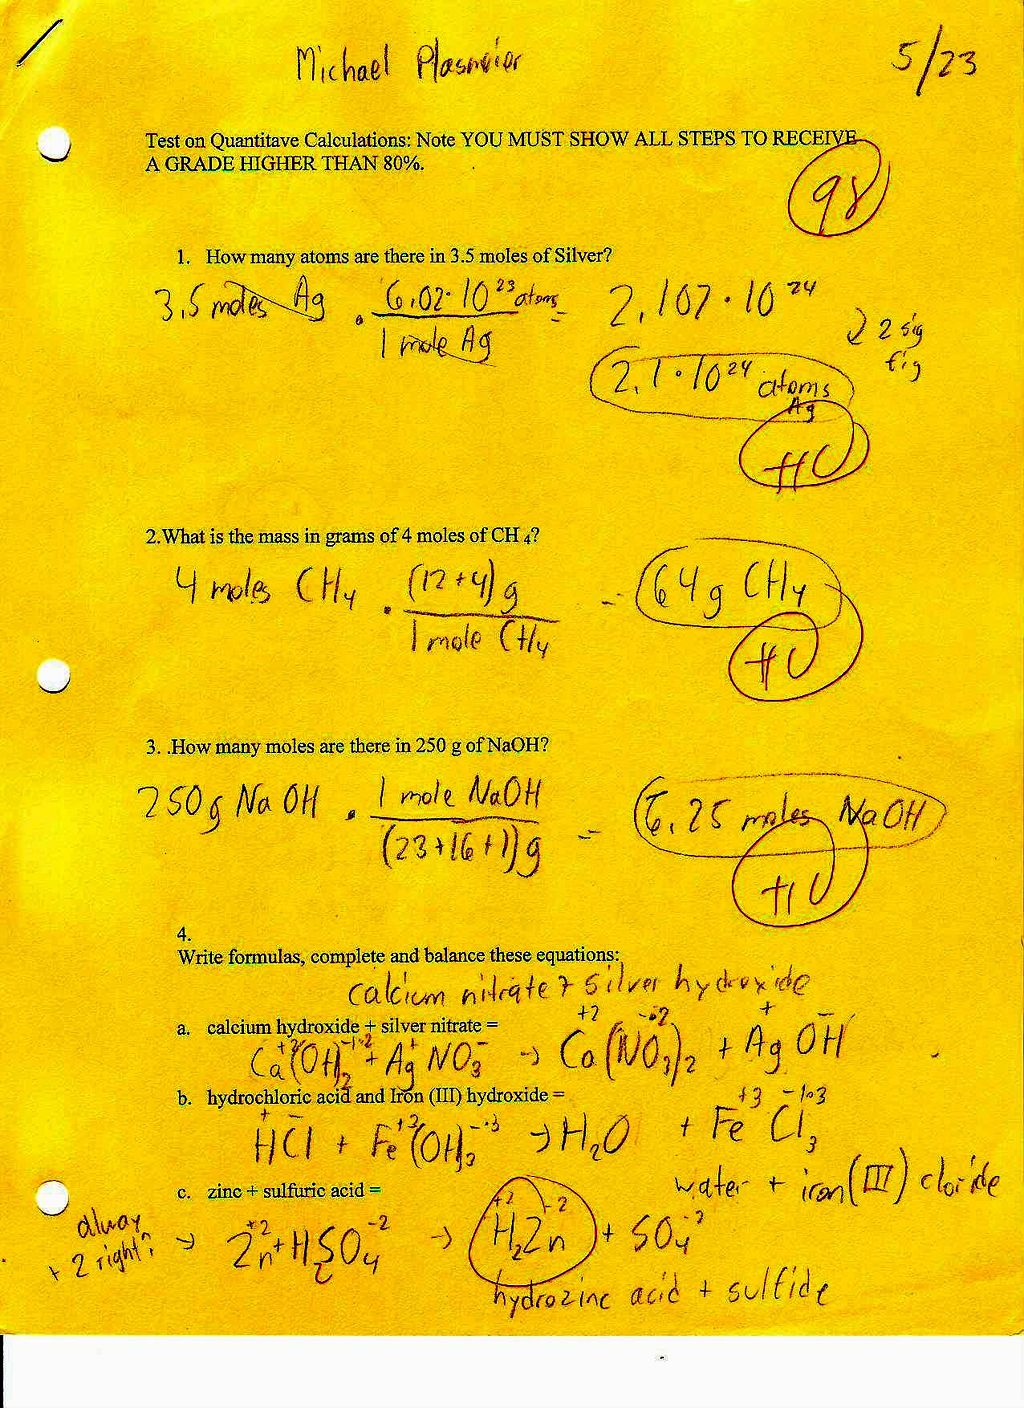 Michael Plasmeier
5/23
Test on Quantitave Calculations: Note YOU MUST SHOW ALL STEPS TO RECEIVE
A GRADE HIGHER THAN 80%.
98
1. How many atoms are there in 3.5 moles of Silver?
3.5 moles Ag · 6.02·10²³ atoms / 1 mole Ag = 2.107·10²⁴
2 sig fig
2.1·10²⁴ atoms Ag
+10
2.What is the mass in grams of 4 moles of CH ₄?
4 moles CH₄ · (12+4)g / 1 mole CH₄ = 64g CH₄
+10
3. .How many moles are there in 250 g of NaOH?
250g NaOH · 1 mole NaOH / (23+16+1)g = 6.25 moles NaOH
+10
4.
Write formulas, complete and balance these equations:
calcium nitrate + silver hydroxide
a. calcium hydroxide + silver nitrate =
Ca⁺²(OH)₂⁻¹·² + Ag⁺NO₃⁻ → Ca⁺²(NO₃)₂⁻·² + Ag⁺OH⁻
b. hydrochloric acid and Iron (III) hydroxide =
H⁺Cl⁻ + Fe⁺³(OH)₃⁻·³ → H₂O + Fe⁺³Cl₃⁻¹·³
water + iron (III) cloride
c. zinc + sulfuric acid =
alway +2 right? → Zn⁺² + H₂SO₄⁻² → H₂⁺²Zn⁻² + SO₄⁻²
hydrozinc acid + sulfide